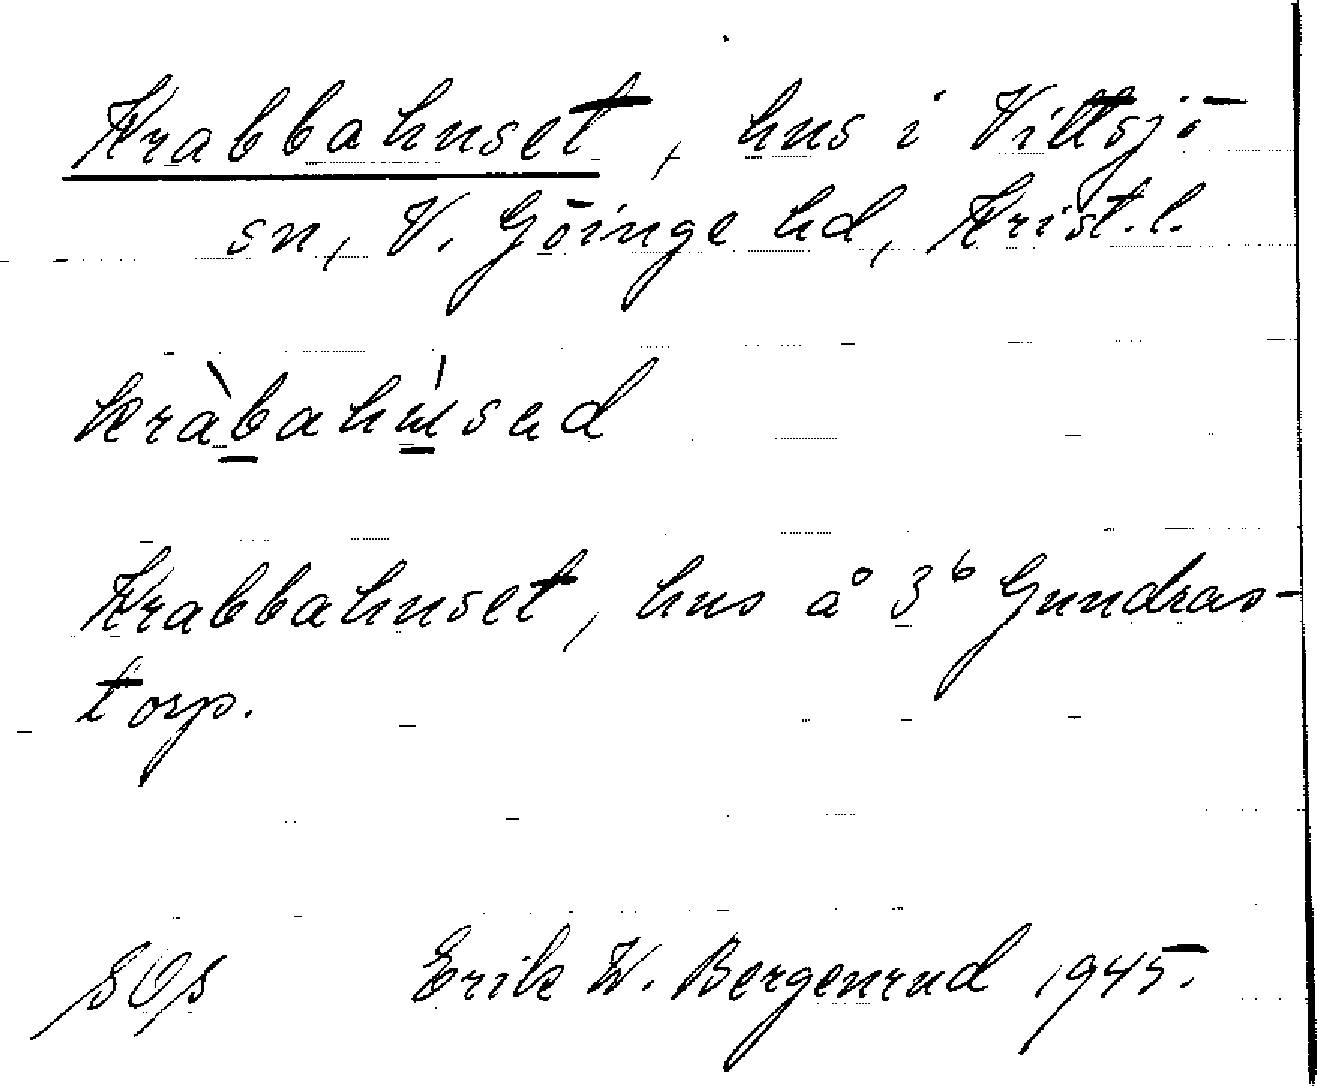 Krabbahuset, hus i Vittsjö
sn, V. Göinge hd, Krist. l.
Krabbahuset, hus å 3⁶ Gundras-
torp.
Erik W. Bergenrud 1945.